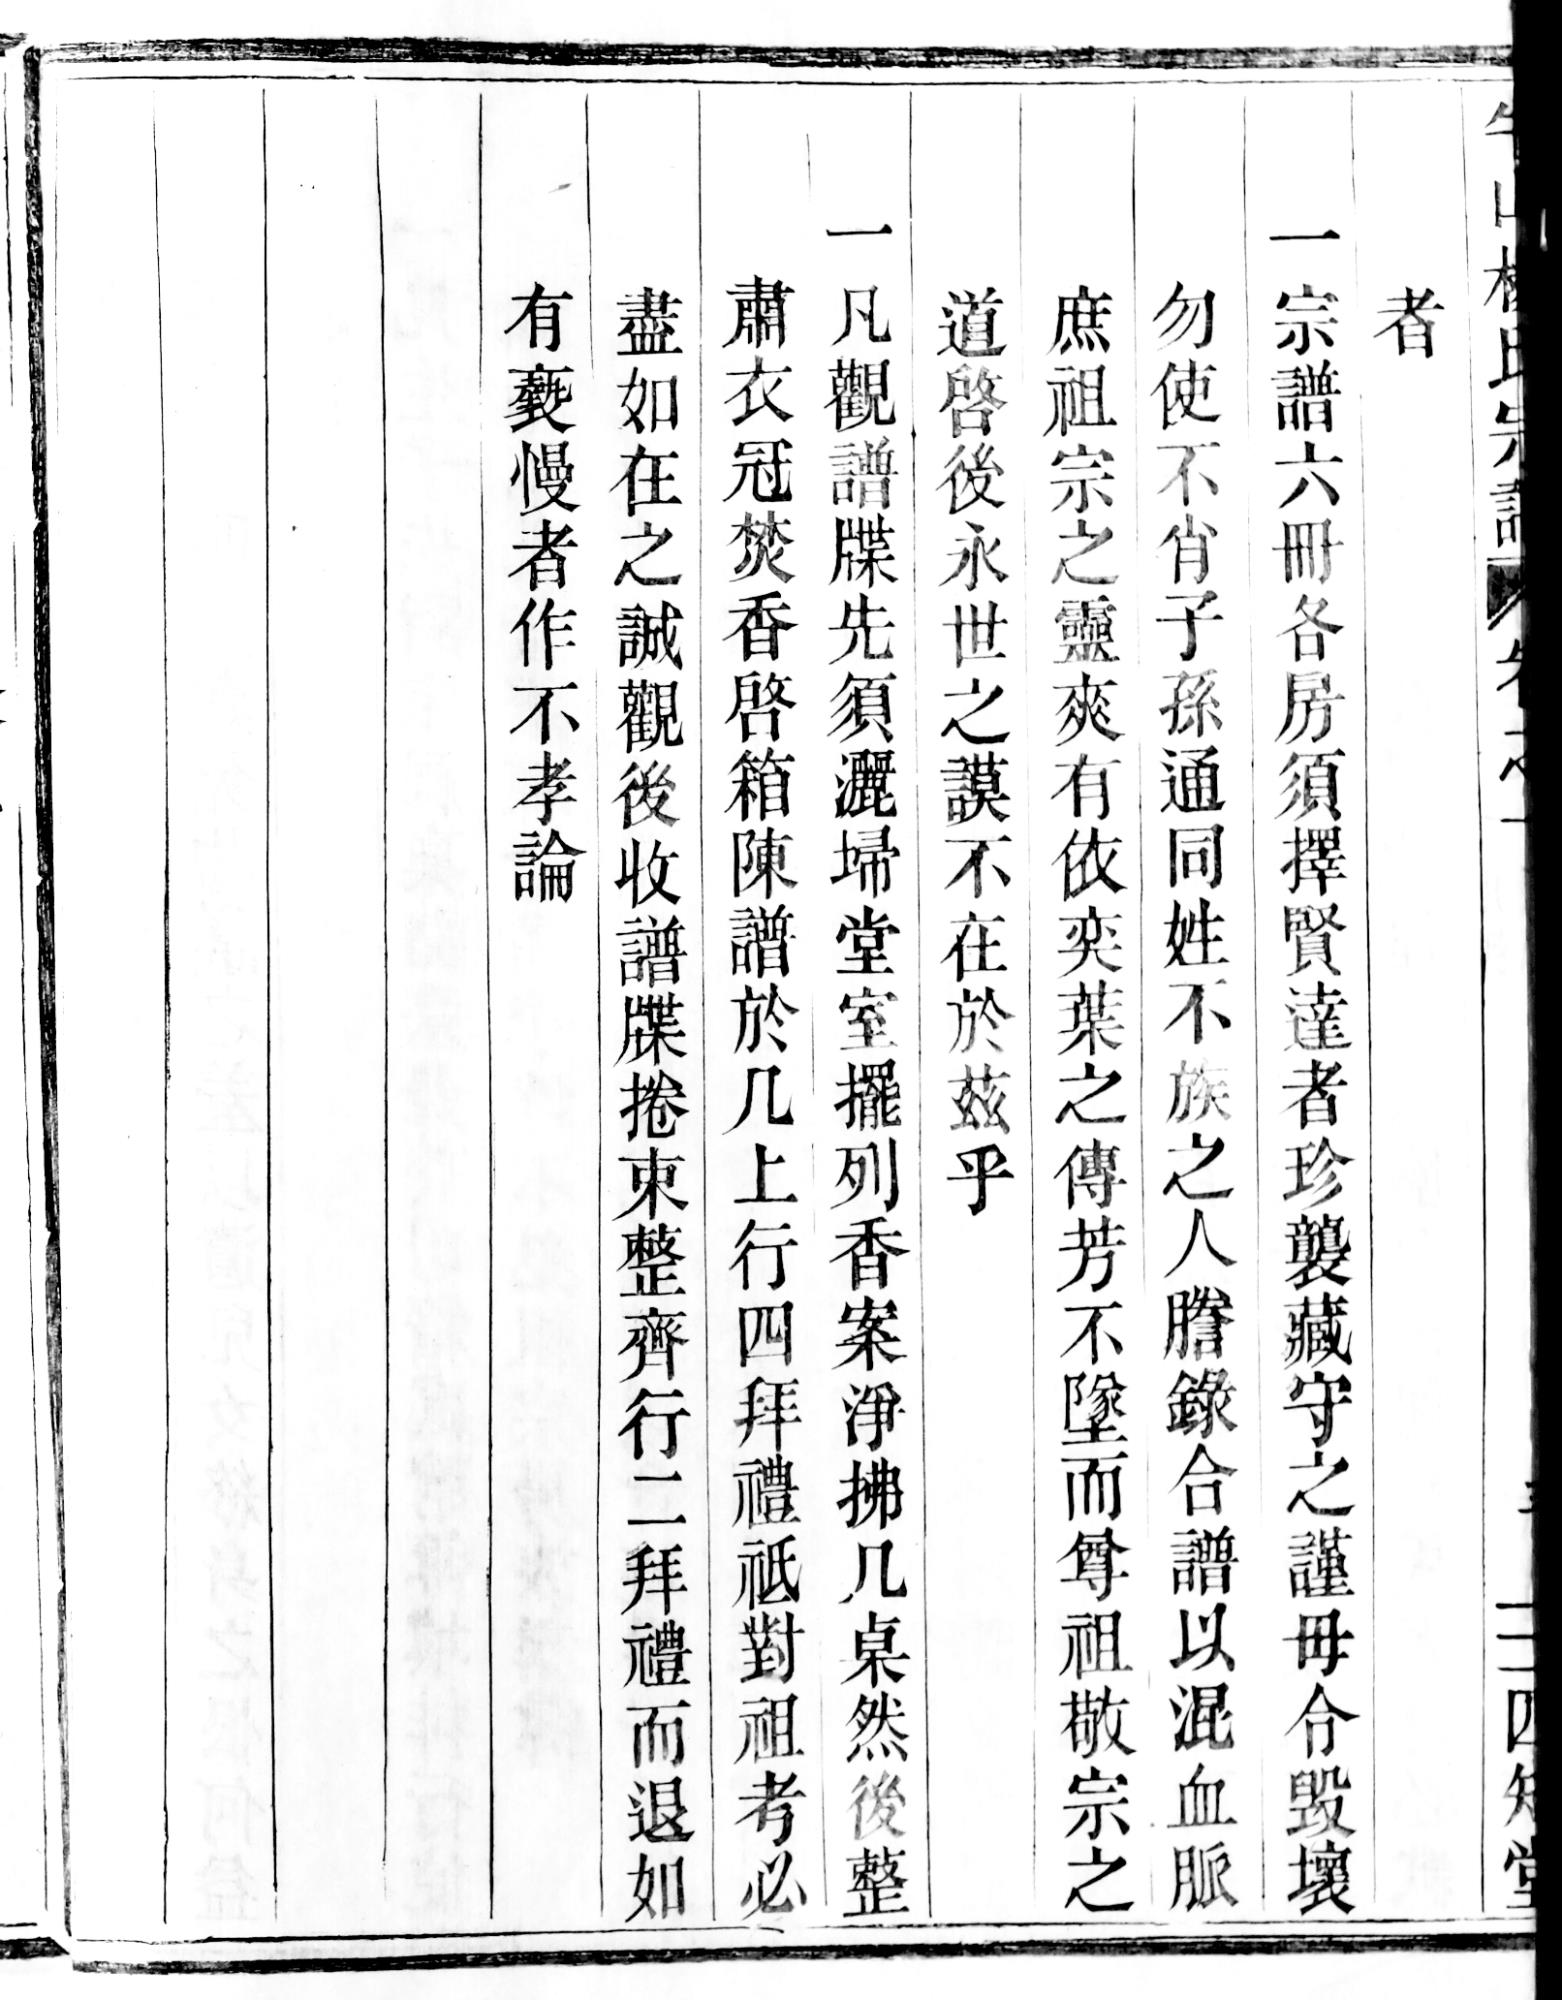 氏宗譜
四知堂
者
一宗譜六冊各房須擇賢達者珍襲藏守之謹毋令毀壞
勿使不肖子孫通同姓不族之人謄錄合譜以混血脈
庶祖宗之靈爽有依奕葉之傳芳不墜而尊祖敬宗之
道啓後永世之謨不在於茲乎
一凡觀譜牒先須灑埽堂室擺列香案淨拂几桌然後整
肅衣冠焚香啓箱陳譜於几上行四拜禮祗對祖考必
盡如在之誠觀後收譜牒捲束整齊行二拜禮而退如
有褻慢者作不孝論